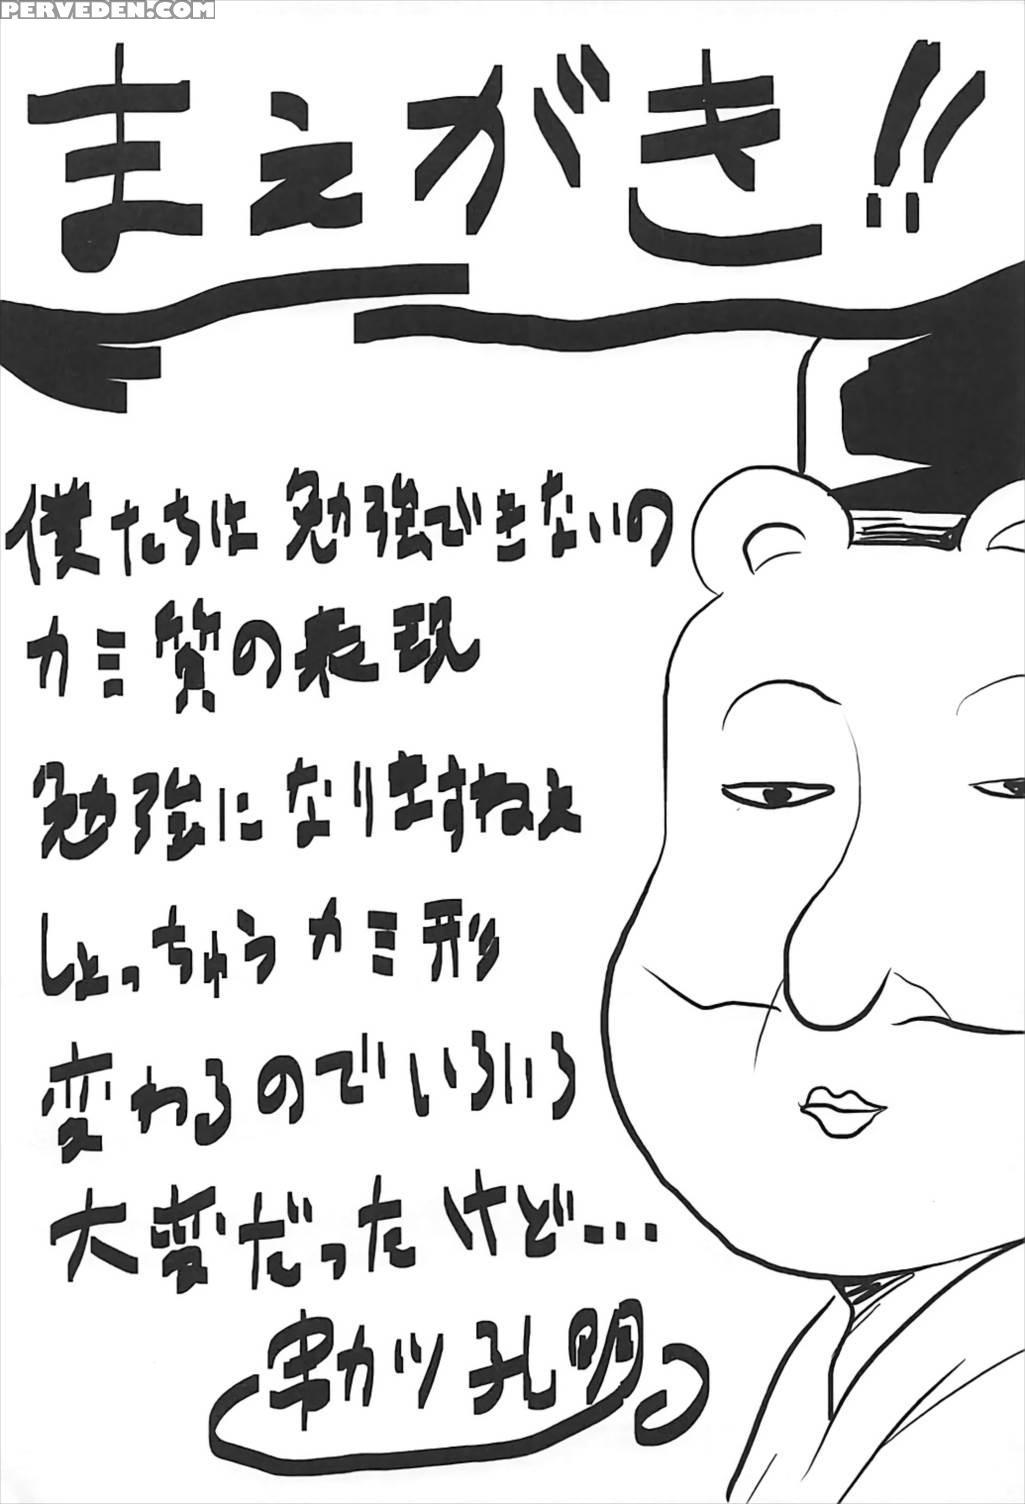 PERVEDEN.COM
まえがき!!
僕たちは勉強できないの
カミ質の表現
勉強になりますねぇ
しょっちゅうカミ形
変わるのでいろいろ
大変だったけど…
串カツ孔明